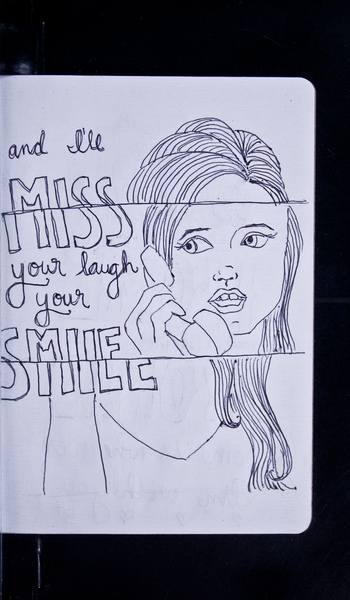 and I'll
MISS
your laugh
your
SMILE